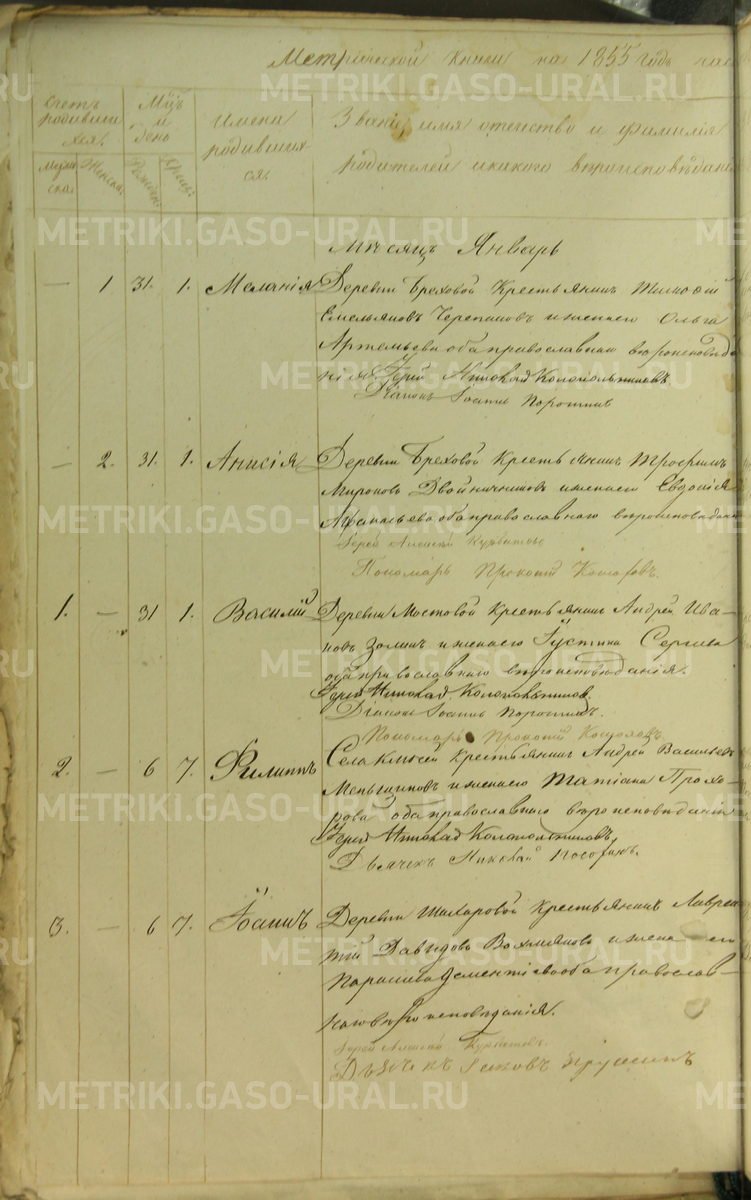 Метрической книги на 1855 годъ
Счетъ родившихся.
Мцъ и день
Имена родившихся.
Званіе, имя отчество и фамилія
родителей и какого вѣроисповѣданія
Мужеска. Женска. Рожденія. Крещ.
Мѣсяцъ Январь
— 1 31. 1. Меланія Деревни Бреховой Крестьянинъ Тимофій
Емельяновъ Черепановъ и жена его Ольга
Артемьева оба православнаго вѣроисповѣда
нія. Іерей Николай Колокольниковъ
Діаконъ Іоаннъ Поротниковъ
— 2. 31. 1. Анисія Деревни Бреховой Крестьянинъ Трофимъ
Мироновъ Двойничниковъ и жена его Евдокія
Афанасьева оба православнаго вѣроисповѣданія
Іерей Алексѣй Курбатовъ
Пономарь Прокопій Комаровъ.
1. — 31 1. Василій Деревни Мостовой Крестьянинъ Андрей Ива
новъ и жена его Іустина Сергѣева
оба православнаго вѣроисповѣданія.
Іерей Николай Колокольниковъ
Діаконъ Іоаннъ
Пономарь Прокопій
2. — 6 7. Филиппъ Села Крестьянинъ Андрей Васильевъ
Меньшиковъ и жена его Татіана Прохо-
рова оба православнаго вѣроисповѣданія
Іерей Николай Колокольниковъ
Дьячекъ Николай
3. — 6 7. Іоаннъ Деревни Крестьянинъ Лаврен
тій Давыдовъ и жена его
Параскева Дементіева оба православ-
наго вѣроисповѣданія.
Іерей Алексѣй Курбатовъ.
Дьячекъ Іаковъ
METRIKI.GASO-URAL.RU